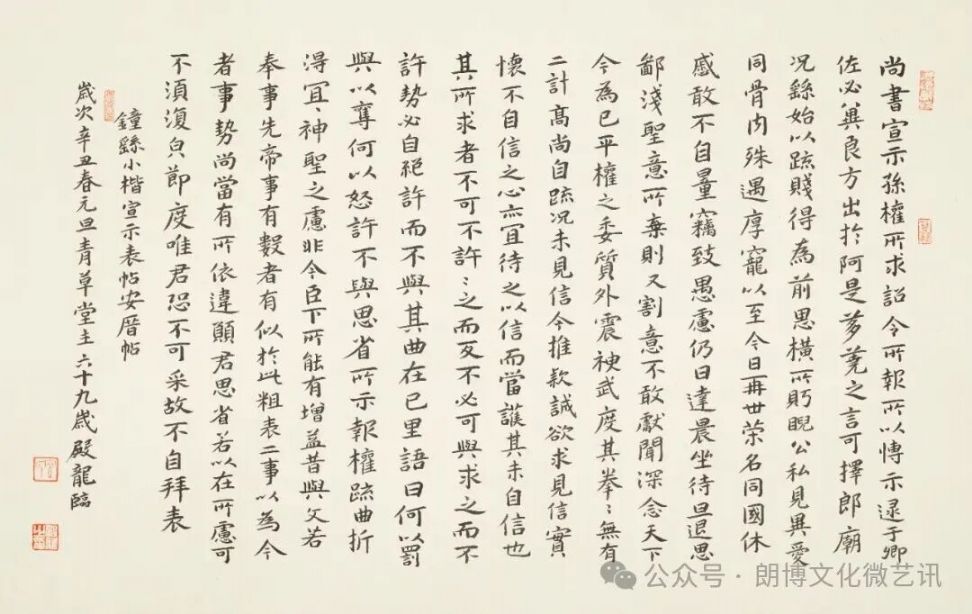 尚書宣示孫權所求詔令所報所以博示逮于卿
佐必冀良方出於阿是芻蕘之言可擇郎廟
況繇始以疏賤得為前思橫所眄睨公私見異愛
同骨肉殊遇厚寵以至今日再世榮名同國休
感敢不自量竊致愚慮仍日達晨坐待旦退思
鄙淺聖意所棄則又割意不敢獻聞深念天下
今為已平權之委質外震神武度其拳〻無有
二計高尚自疏況未見信今推款誠欲求見信實
懷不自信之心亦宜待之以信而當護其未自信也
其所求者不可不許〻之而反不必可與求之而不
許勢必自絕許而不與其曲在己里語曰何以罰
與以奪何以怒許不與思省所示報權疏曲折
得宜〻神聖之慮非今臣下所能有增益昔與文若
奉事先帝事有數者有似於此粗表二事以為今
者事勢尚當有所依違願君思省若以在所慮可
不須復皃節度唯君恐不可采故不自拜表
鐘繇小楷宣示表帖安厝帖
歲次辛丑春元旦青草堂主六十九歲殿龍臨
公众号·朗博文化微艺讯